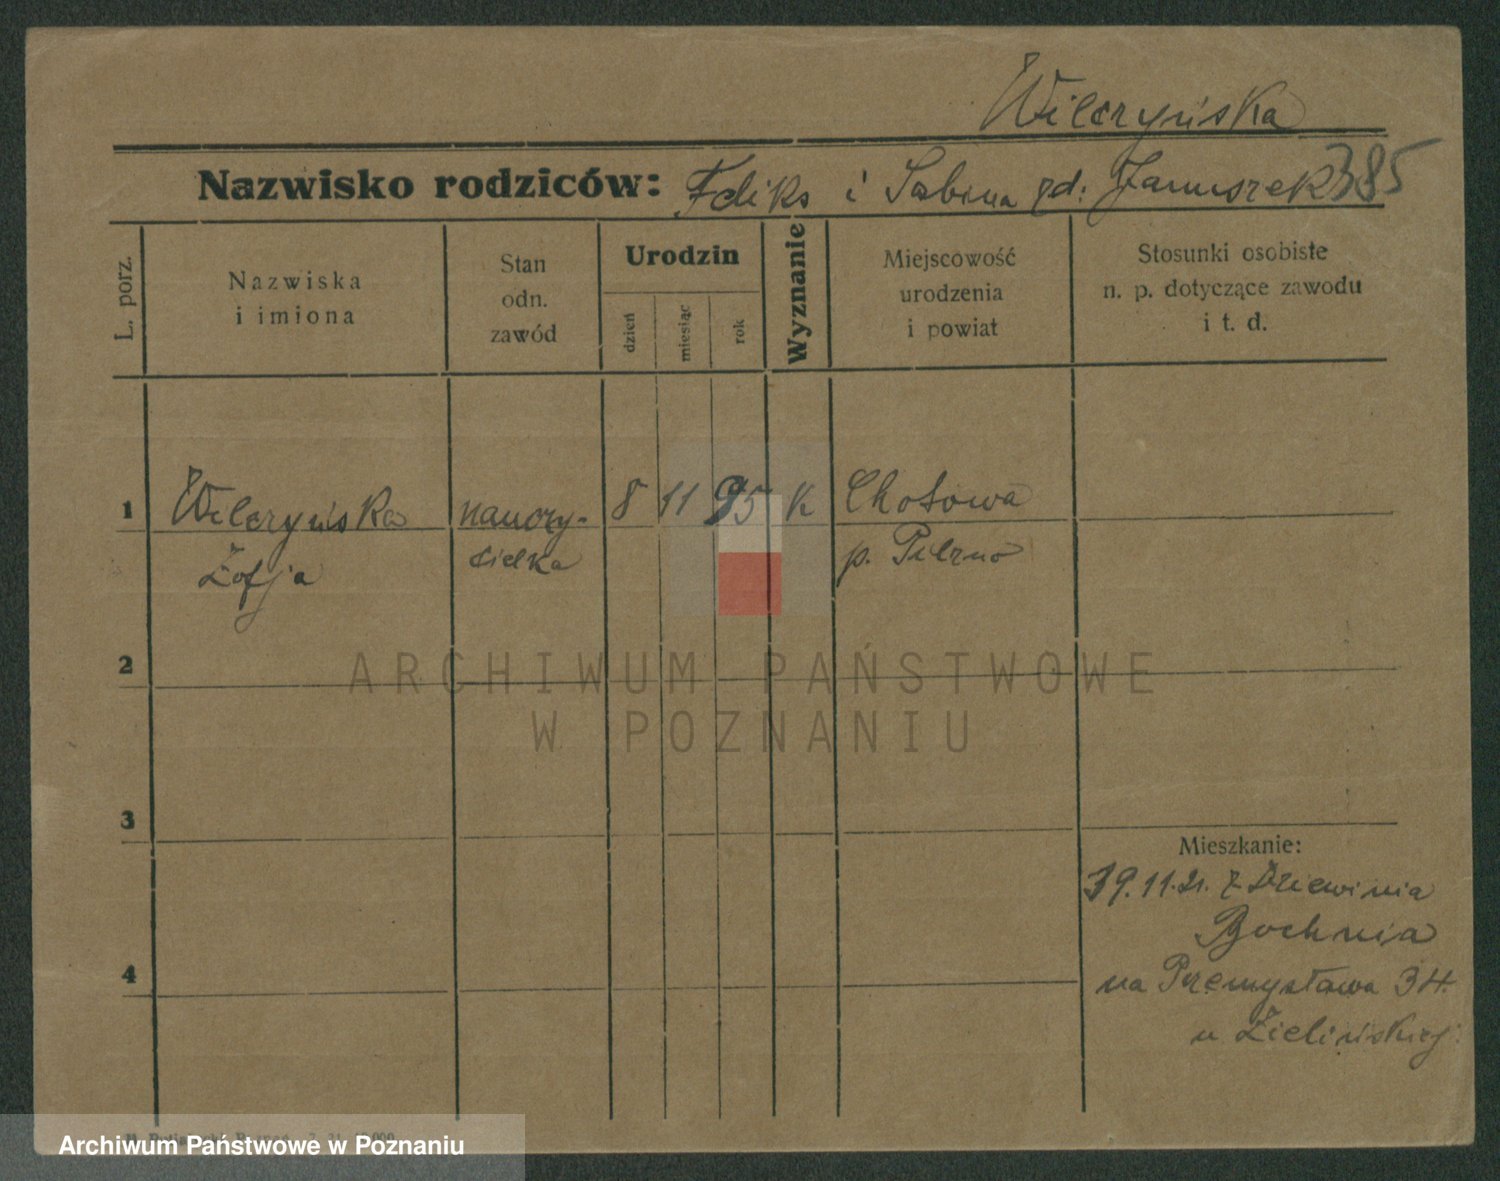 Wilczyńska
Nazwisko rodziców: Feliks i Sabina zd: Januszek 385
L. porz.
Nazwiska
i imiona
Stan
odn.
zawód
Urodzin
dzień
miesiąc
rok
Wyznanie
Miejscowość
urodzenia
i powiat
Stosunki osobiste
n. p. dotyczące zawodu
i t. d.
1 Wilczyńska nauczy- 8 11 95 K Chotowa
Zofja cielka p. Pilzno
2
ARCHIWUM PAŃSTWOWE
W POZNANIU
3
Mieszkanie:
19.11.21. z Dziewinia
Bochnia
4
na Przemysława 34.
u Zielińskiej
Archiwum Państwowe w Poznaniu